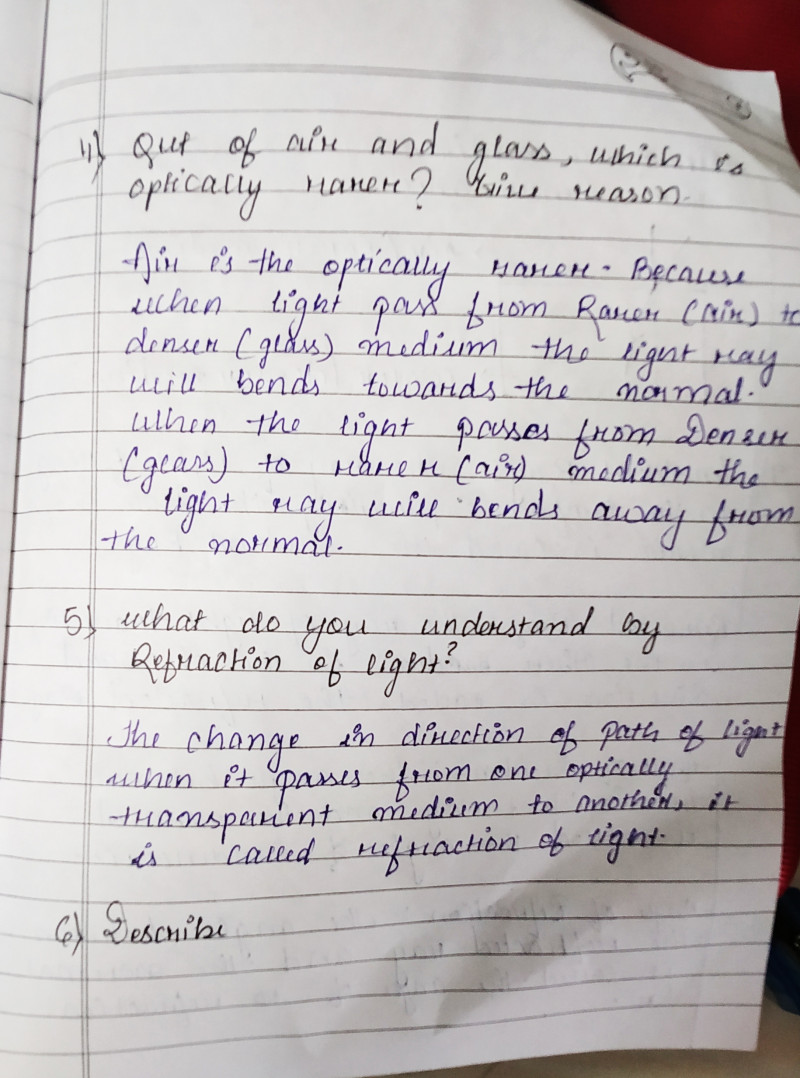 4) Out of air and glass, which is
optically rarer? Give reason.
Air is the optically rarer. Because
when light pass from Rarer (air) to
denser (glass) medium the light ray
will bends towards the normal.
When the light passes from Denser
(glass) to rarer (air) medium the
light ray will bends away from
the normal.
5) What do you understand by
Refraction of light?
The change in direction of path of light
when it passes from one optically
transparent medium to another, it
is called refraction of light.
6) Describe